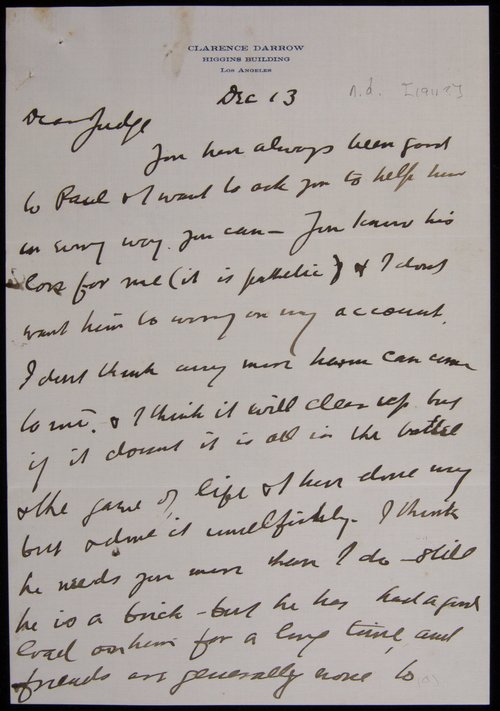 CLARENCE DARROW
HIGGINS BUILDING
LOS ANGELES
Dec 13
n.d. [1911?]
Dear Judge
You have always been good
to Paul & I want to ask you to help him
in every way you can — You know his
love for me (it is pathetic) & I dont
want him to worry on my account.
I dont think any more harm can come
to me. & I think it will clear up but
if it doesnt it is all in the battle
& the game of life & I have done my
best & done it unselfishly. I think
he needs you more than I do — still
he is a brick — but he has had a good
load on him for a long time and
friends are generally none to